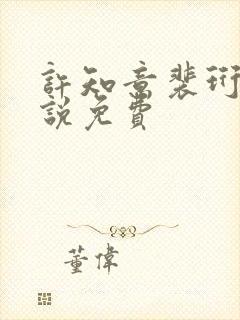 許知意裴珩
說免費
董偉